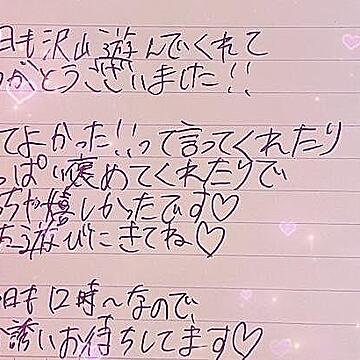 日も沢山遊んでくれて
がとうございました!!
てよかった!!って言ってくれたり
っぱい褒めてくれたりで
ちゃ嬉しかったです♡
遊びにきてね♡
日も12時〜なので、
誘いお待ちしてます♡